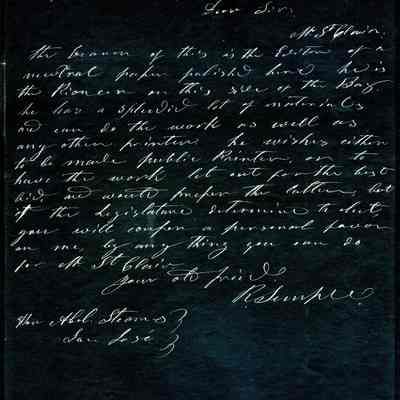 Dear Sir,
Mr St Clair,
the bearer of this is the Editor of a
neutral paper published here he is
the Pioneer on this side of the Bay.
he has a splendid lot of materials
and can do the work as well as
any other printer. he wishes either
to be made public Printer, or to
have the work let out for the best
bid, and would prefer the latter, but
if the Legislature determine to elect,
you will confer a personal favor
on me, by any thing you can do
for Mr St Clair
your old friend.
R. Semple.
Hon Abel Stearns
San José